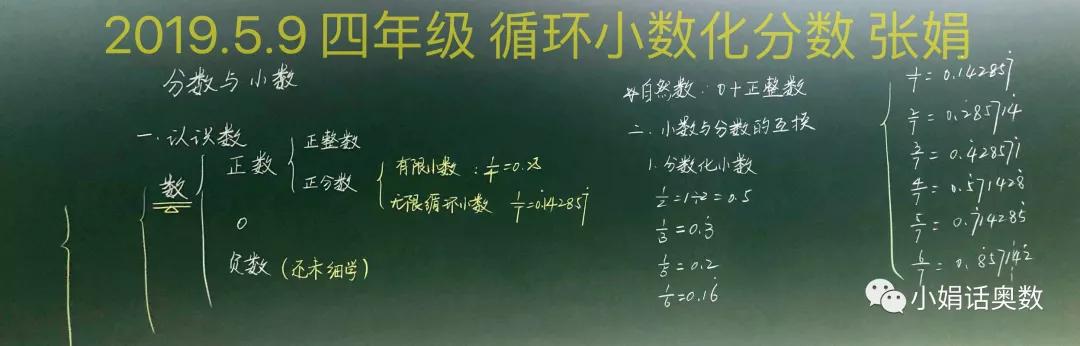 2019.5.9 四年级 循环小数化分数 张娟
分数与小数
一.认识数
数
正数
正整数
正分数
有限小数:1/4=0.25
无限循环小数 1/7=0.1̇42857̇
0
负数(还未细学)
*自然数:0+正整数
二.小数与分数的互换
1.分数化小数
1/2=1÷2=0.5
1/3=0.3̇
1/5=0.2
1/6=0.16̇
1/7=0.1̇42857̇
2/7=0.2̇85714̇
3/7=0.4̇28571̇
4/7=0.5̇71428̇
5/7=0.7̇14285̇
6/7=0.8̇57142̇
小娟话奥数